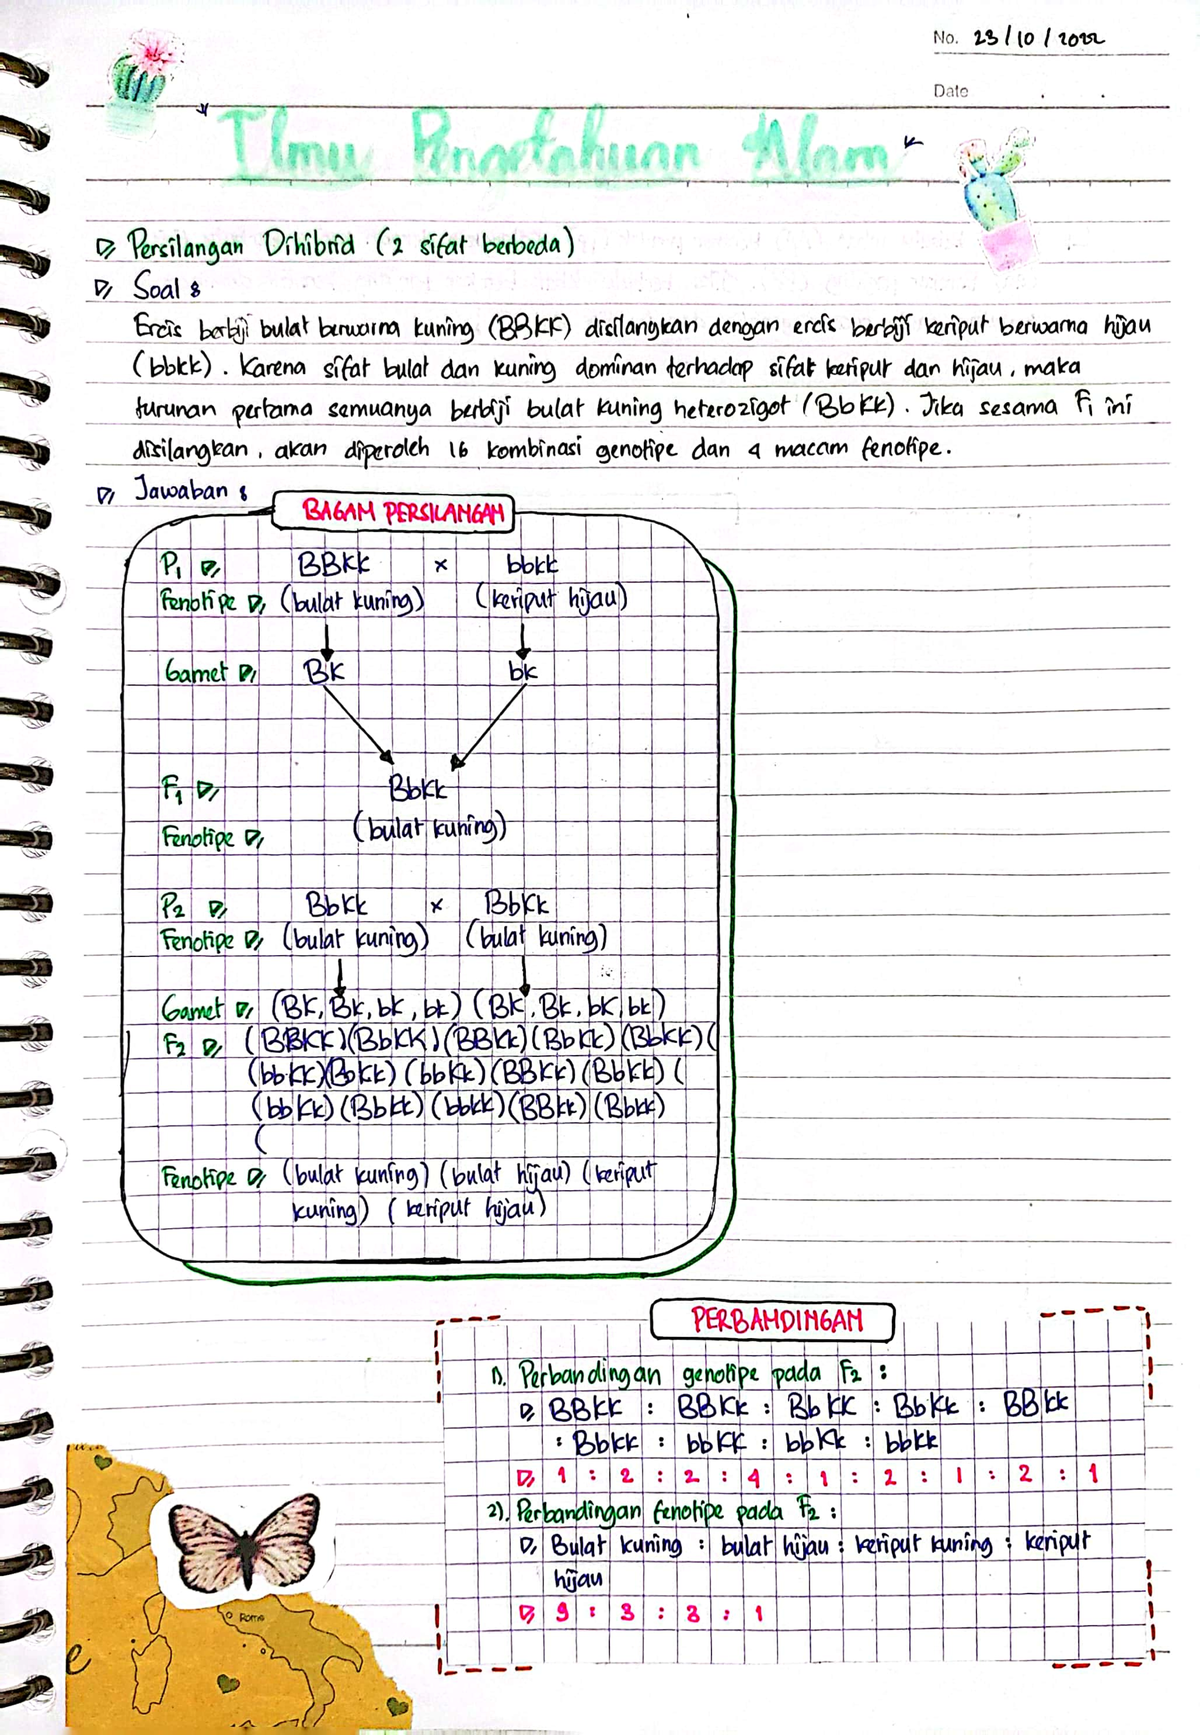 No. 23/10/2022
Date . .
Ilmu Pengetahuan Alam
Persilangan Dihibrid (2 sifat berbeda)
Soal :
Ercis berbiji bulat berwarna kuning (BBKK) disilangkan dengan ercis berbiji keriput berwarna hijau
(bbkk). Karena sifat bulat dan kuning dominan terhadap sifat keriput dan hijau, maka
turunan pertama semuanya berbiji bulat kuning heterozigot (BbKk). Jika sesama F1 ini
disilangkan, akan diperoleh 16 kombinasi genotipe dan 4 macam fenotipe.
Jawaban :
BAGAM PERSILANGAN
P1 BBKK × bbkk
Fenotipe (bulat kuning) (keriput hijau)
Gamet BK bk
F1 BbKk
Fenotipe (bulat kuning)
P2 BbKk × BbKk
Fenotipe (bulat kuning) (bulat kuning)
Gamet (BK, Bk, bK, bk) (BK, Bk, bK, bk)
F2 (BBKK) (BbKK) (BBKk) (BbKk) (BbKK) (
(bbKK) (BbKk) (bbKk) (BBKk) (BbKk) (
(bbKk) (Bbkk) (bbkk) (BBkk) (Bbkk)
(
Fenotipe (bulat kuning) (bulat hijau) (keriput
kuning) (keriput hijau)
PERBANDINGAN
1). Perbandingan genotipe pada F2 :
BBKK : BBKk : BbKK : BbKk : BBkk
: Bbkk : bbKK : bbKk : bbkk
1 : 2 : 2 : 4 : 1 : 2 : 1 : 2 : 1
2). Perbandingan fenotipe pada F2 :
Bulat kuning : bulat hijau : keriput kuning : keriput
hijau
9 : 3 : 3 : 1
Roma
e